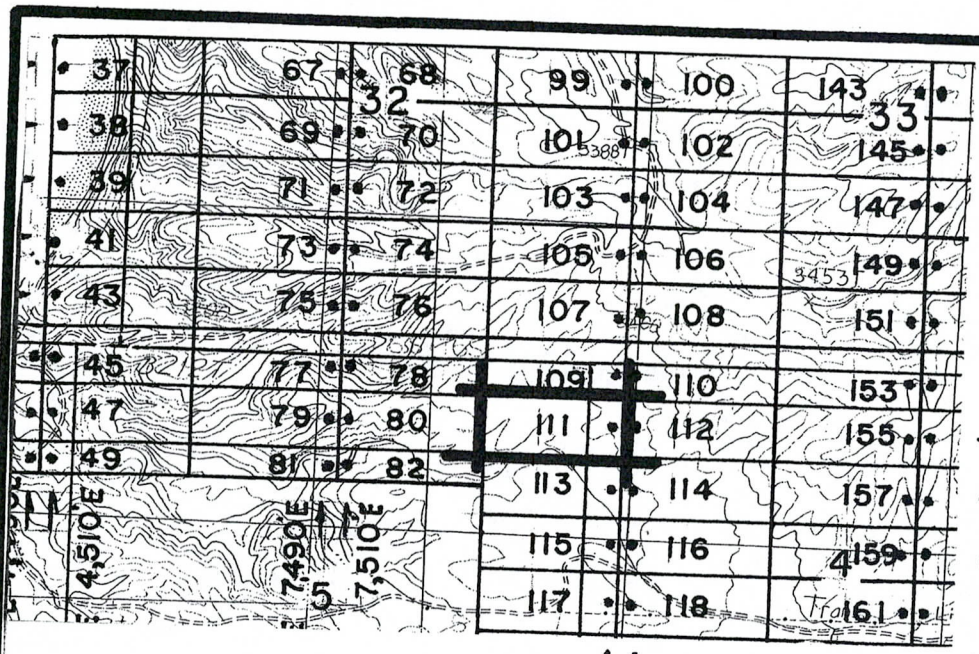 37 67 68 99 100 143
32 33
38 69 70 101 5388 102 145
39 71 72 103 104 147
41 73 74 105 106 149
3453
43 75 76 107 108 151
45 77 78 109 110 153
47 79 80 111 112 155
49 81 82 113 114 157
4,510'E 7,490'E 7,510'E
115 116 4 159
5
117 118 161